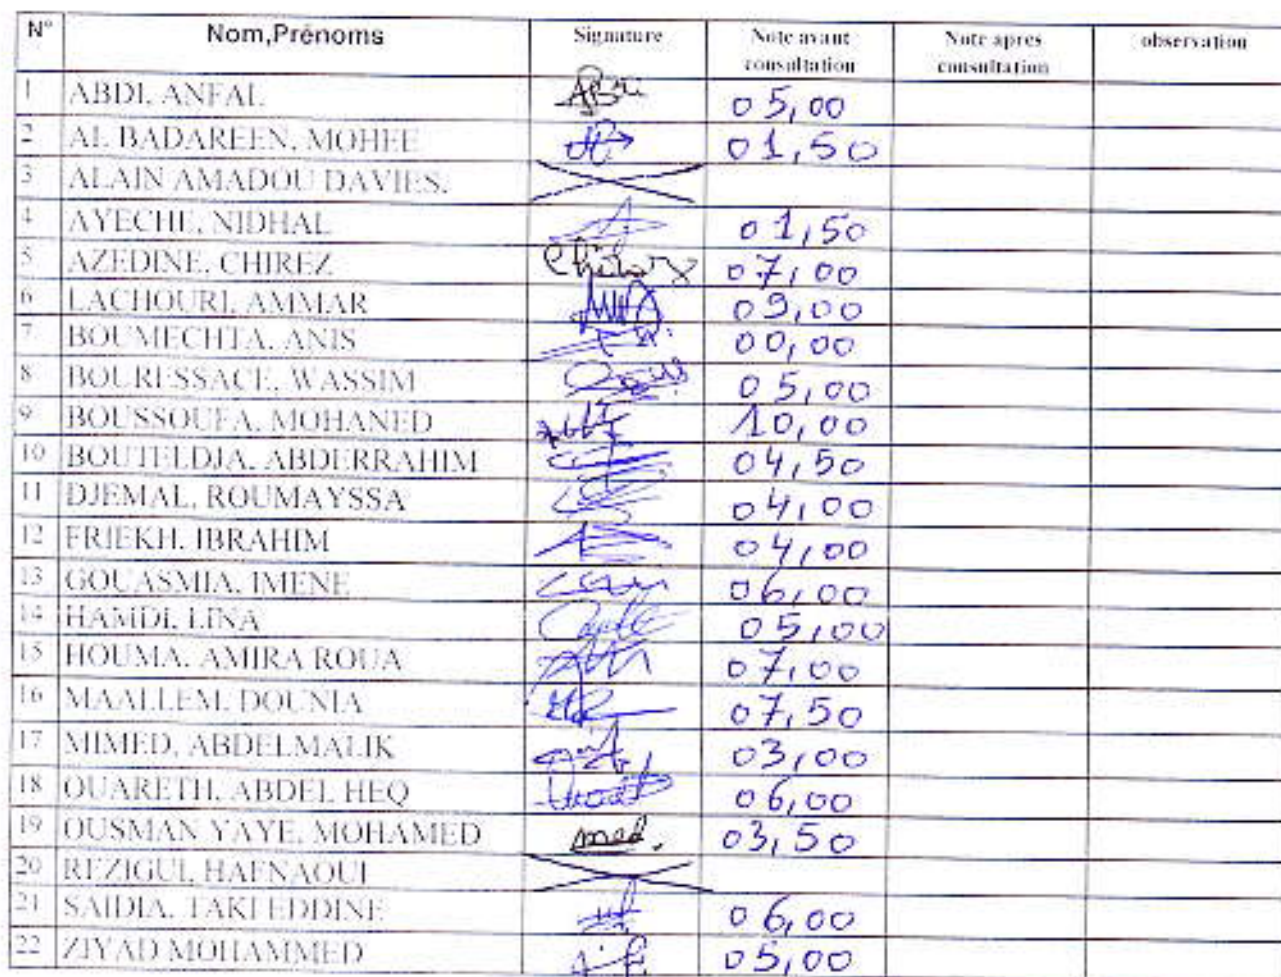 N° Nom,Prénoms Signature Note avant consultation Note apres consultation observation
1 ABDI, ANFAL 05,00
2 AL BADAREEN, MOHEE 01,50
3 ALAIN AMADOU DAVIES,
4 AYECHE, NIDHAL 01,50
5 AZEDINE, CHIREZ 07,00
6 LACHOURI, AMMAR 09,00
7 BOUMECHTA, ANIS 00,00
8 BOURESSACE, WASSIM 05,00
9 BOUSSOUFA, MOHANED 10,00
10 BOUTELDJA, ABDERRAHIM 04,50
11 DJEMAL, ROUMAYSSA 04,00
12 FRIEKH, IBRAHIM 04,00
13 GOUASMIA, IMENE 06,00
14 HAMDI, LINA 05,00
15 HOUMA, AMIRA ROUA 07,00
16 MAALLEM, DOUNIA 07,50
17 MIMED, ABDELMALIK 03,00
18 OUARETH, ABDEL HEQ 06,00
19 OUSMAN YAYE, MOHAMED med. 03,50
20 REZIGUI, HAFNAOUI
21 SAIDIA, TAKI EDDINE 06,00
22 ZIYAD MOHAMMED 05,00